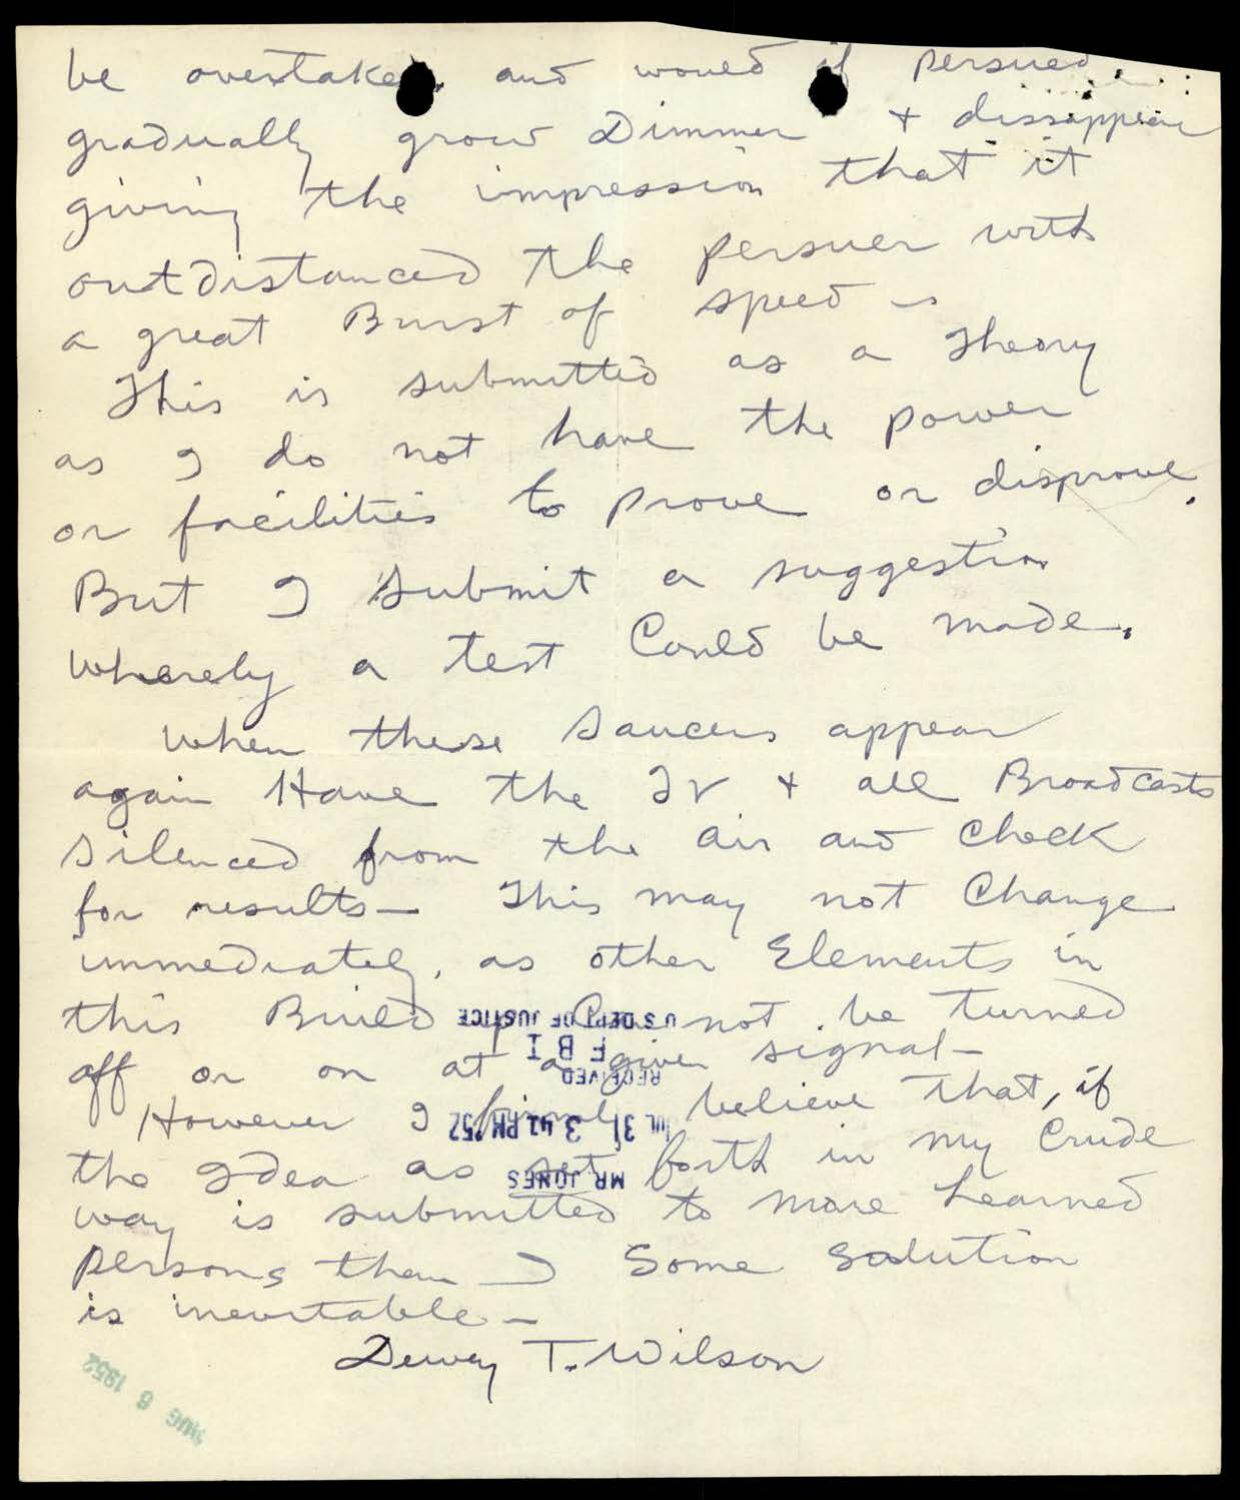 be overtaken. and would if persued
gradually grow Dimmer & dissappear
giving the impression that it
outdistanced the persuer with
a great Burst of speed –
This is submitted as a Theory
as I do not have the power
or facilities to prove or disprove.
But I submit a suggestion
whereby a test Could be made.
when these saucers appear
again Have the TV & all Broadcasts
silenced from the air and Check
for results – This may not Change
immediately, as other Elements in
this Build up Can not be turned
off or on at a given signal –
However I firmly believe that, if
the Idea as set forth in my Crude
way is submitted to more Learned
persons than I some solution
is inevitable –
Dewey T. Wilson
U.S. DEPT OF JUSTICE
F B I
RECEIVED
JUL 31 3 41 PM '52
MR. JONES
AUG 6 1952